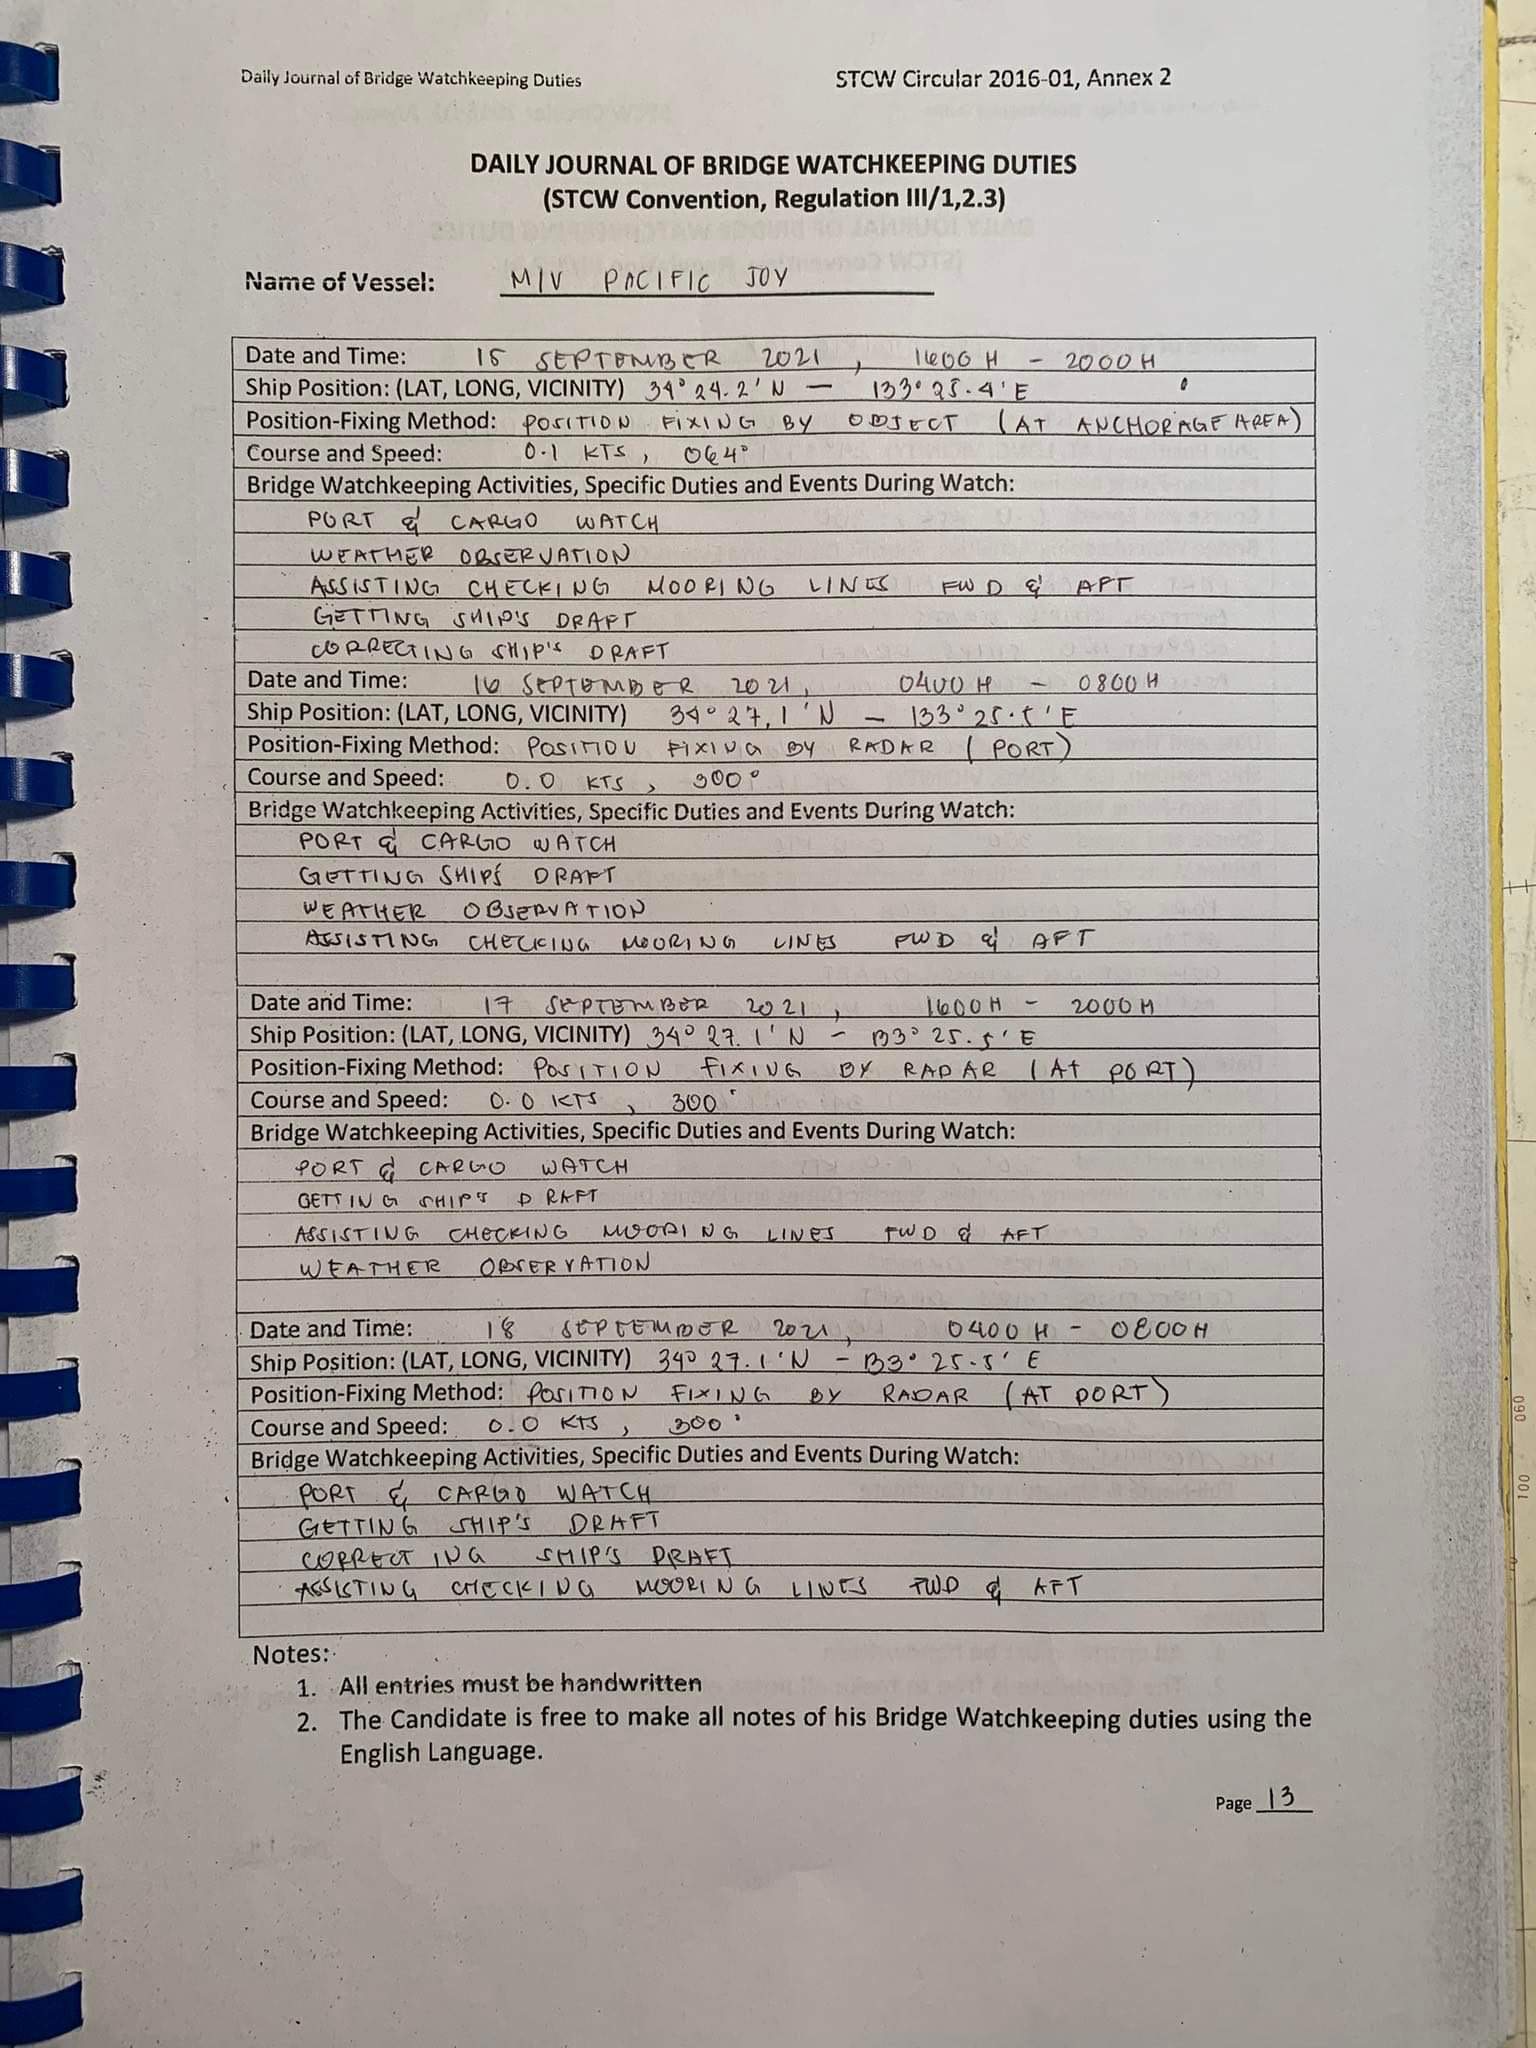 Daily Journal of Bridge Watchkeeping Duties
STCW Circular 2016-01, Annex 2
DAILY JOURNAL OF BRIDGE WATCHKEEPING DUTIES
(STCW Convention, Regulation III/1,2.3)
Name of Vessel: M/V PACIFIC JOY
Date and Time: 15 SEPTEMBER 2021, 1600 H - 2000 H
Ship Position: (LAT, LONG, VICINITY) 34° 24.2' N - 133° 25.4' E
Position-Fixing Method: POSITION FIXING BY OBJECT (AT ANCHORAGE AREA)
Course and Speed: 0.1 KTS, 064°
Bridge Watchkeeping Activities, Specific Duties and Events During Watch:
PORT & CARGO WATCH
WEATHER OBSERVATION
ASSISTING CHECKING MOORING LINES FWD & AFT
GETTING SHIP'S DRAFT
CORRECTING SHIP'S DRAFT
Date and Time: 16 SEPTEMBER 2021, 0400 H - 0800 H
Ship Position: (LAT, LONG, VICINITY) 34° 27.1' N - 133° 25.5' E
Position-Fixing Method: POSITION FIXING BY RADAR (PORT)
Course and Speed: 0.0 KTS, 300°
Bridge Watchkeeping Activities, Specific Duties and Events During Watch:
PORT & CARGO WATCH
GETTING SHIP'S DRAFT
WEATHER OBSERVATION
ASSISTING CHECKING MOORING LINES FWD & AFT
Date and Time: 17 SEPTEMBER 2021, 1600 H - 2000 H
Ship Position: (LAT, LONG, VICINITY) 34° 27.1' N - 133° 25.5' E
Position-Fixing Method: POSITION FIXING BY RADAR (AT PORT)
Course and Speed: 0.0 KTS, 300°
Bridge Watchkeeping Activities, Specific Duties and Events During Watch:
PORT & CARGO WATCH
GETTING SHIP'S DRAFT
ASSISTING CHECKING MOORING LINES FWD & AFT
WEATHER OBSERVATION
Date and Time: 18 SEPTEMBER 2021, 0400 H - 0800 H
Ship Position: (LAT, LONG, VICINITY) 34° 27.1' N - 133° 25.5' E
Position-Fixing Method: POSITION FIXING BY RADAR (AT PORT)
Course and Speed: 0.0 KTS, 300°
Bridge Watchkeeping Activities, Specific Duties and Events During Watch:
PORT & CARGO WATCH
GETTING SHIP'S DRAFT
CORRECTING SHIP'S DRAFT
ASSISTING CHECKING MOORING LINES FWD & AFT
Notes:
1. All entries must be handwritten
2. The Candidate is free to make all notes of his Bridge Watchkeeping duties using the
English Language.
Page 13
060
100